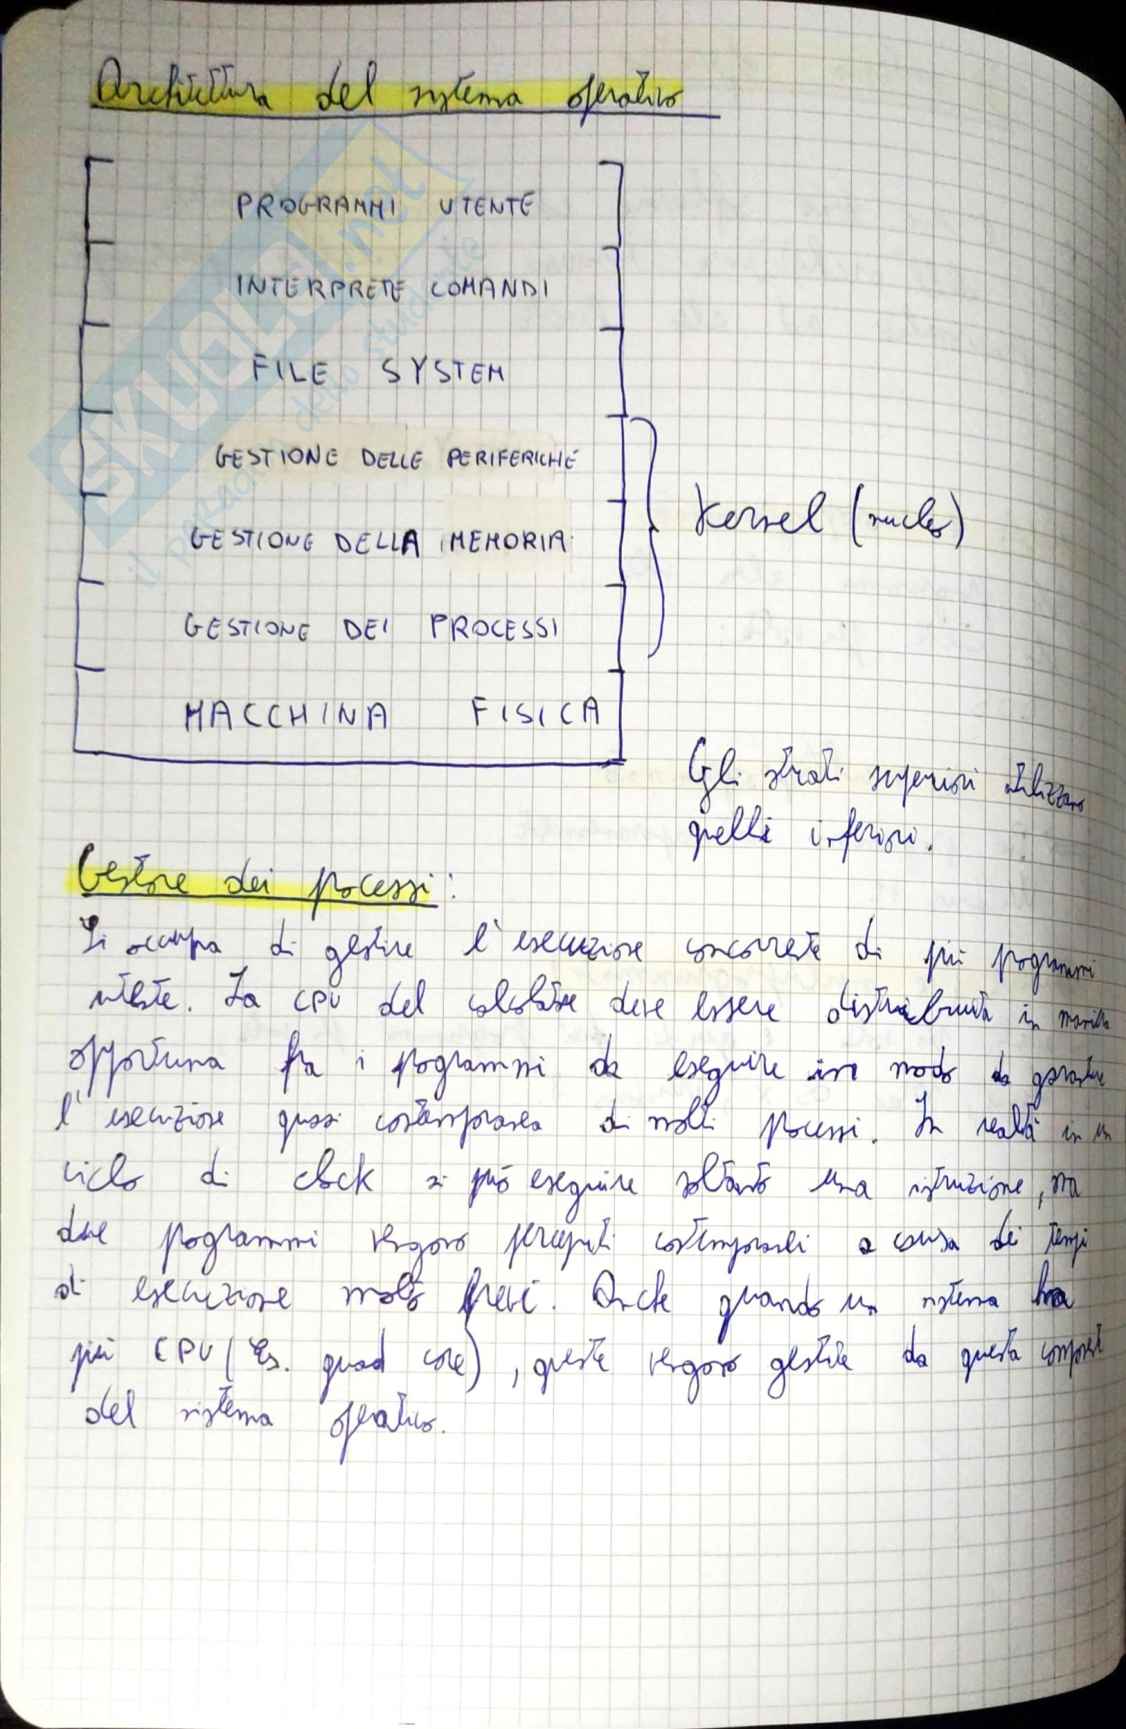 Architettura del sistema operativo
PROGRAMMI UTENTE
INTERPRETE COMANDI
FILE SYSTEM
GESTIONE DELLE PERIFERICHE
GESTIONE DELLA MEMORIA
GESTIONE DEI PROCESSI
MACCHINA FISICA
Kernel (nucleo)
Gli strati superiori utilizzano
quelli inferiori.
Gestore dei processi:
Si occupa di gestire l'esecuzione concorrente di più programmi
utente. La CPU del calcolatore deve essere distribuita in maniera
opportuna fra i programmi da eseguire in modo da garantire
l'esecuzione quasi contemporanea di molti processi. In realtà in un
ciclo di clock si può eseguire soltanto una istruzione, ma
due programmi vengono percepiti contemporanei a causa dei tempi
di esecuzione molto brevi. Anche quando un sistema ha
più CPU (Es. quad core), queste vengono gestite da questa component
del sistema operativo.
SKUOLA.net
il paradiso dello studente